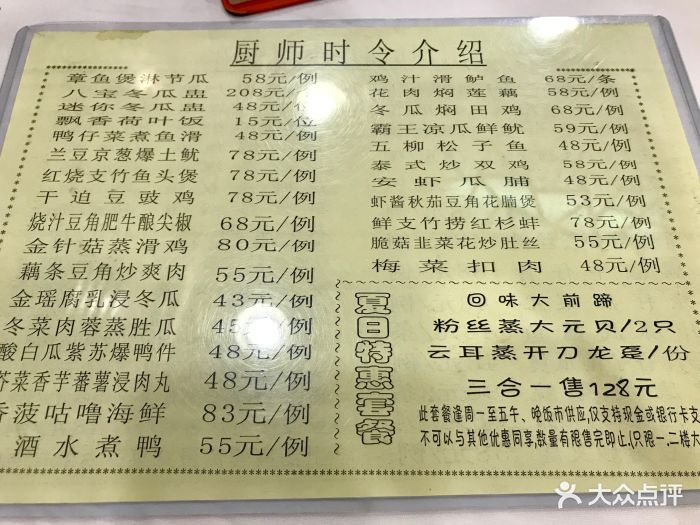 厨师时令介绍
章鱼煲淋节瓜 58元/例
八宝冬瓜盅 208元/
迷你冬瓜盅 48元/例
飘香荷叶饭 15元/位
鸭仔菜煮鱼滑 48元/例
兰豆京葱爆土鱿 78元/例
红烧支竹鱼头煲 78元/例
干迫豆豉鸡 78元/例
烧汁豆角肥牛酿尖椒 68元/例
金针菇蒸滑鸡 80元/例
藕条豆角炒爽肉 55元/例
金瑶腐乳浸冬瓜 43元/例
冬菜肉蓉蒸胜瓜 45元/例
酸白瓜紫苏爆鸭件 48元/例
芥菜香芋蕃薯浸肉丸 48元/例
香菠咕噜海鲜 83元/例
酒水煮鸭 55元/例
鸡汁滑鲈鱼 68元/条
花肉焖莲藕 58元/例
冬瓜焖田鸡 68元/例
霸王凉瓜鲜鱿 59元/例
五柳松子鱼 48元/例
泰式炒双鸡 58元/例
安虾瓜脯 48元/例
虾酱秋茄豆角花腩煲 53元/例
鲜支竹捞红杉蚌 78元/例
脆菇韭菜花炒肚丝 55元/例
梅菜扣肉 48元/例
夏日特惠套餐
回味大前蹄
粉丝蒸大元贝/2只
云耳蒸开刀龙趸/份
三合一售128元
此套餐逢周一至五午、晚饭市供应,仅支持现金或银行卡支
不可以与其他优惠同享,数量有限售完即止,(只限一、二楼大
大众点评